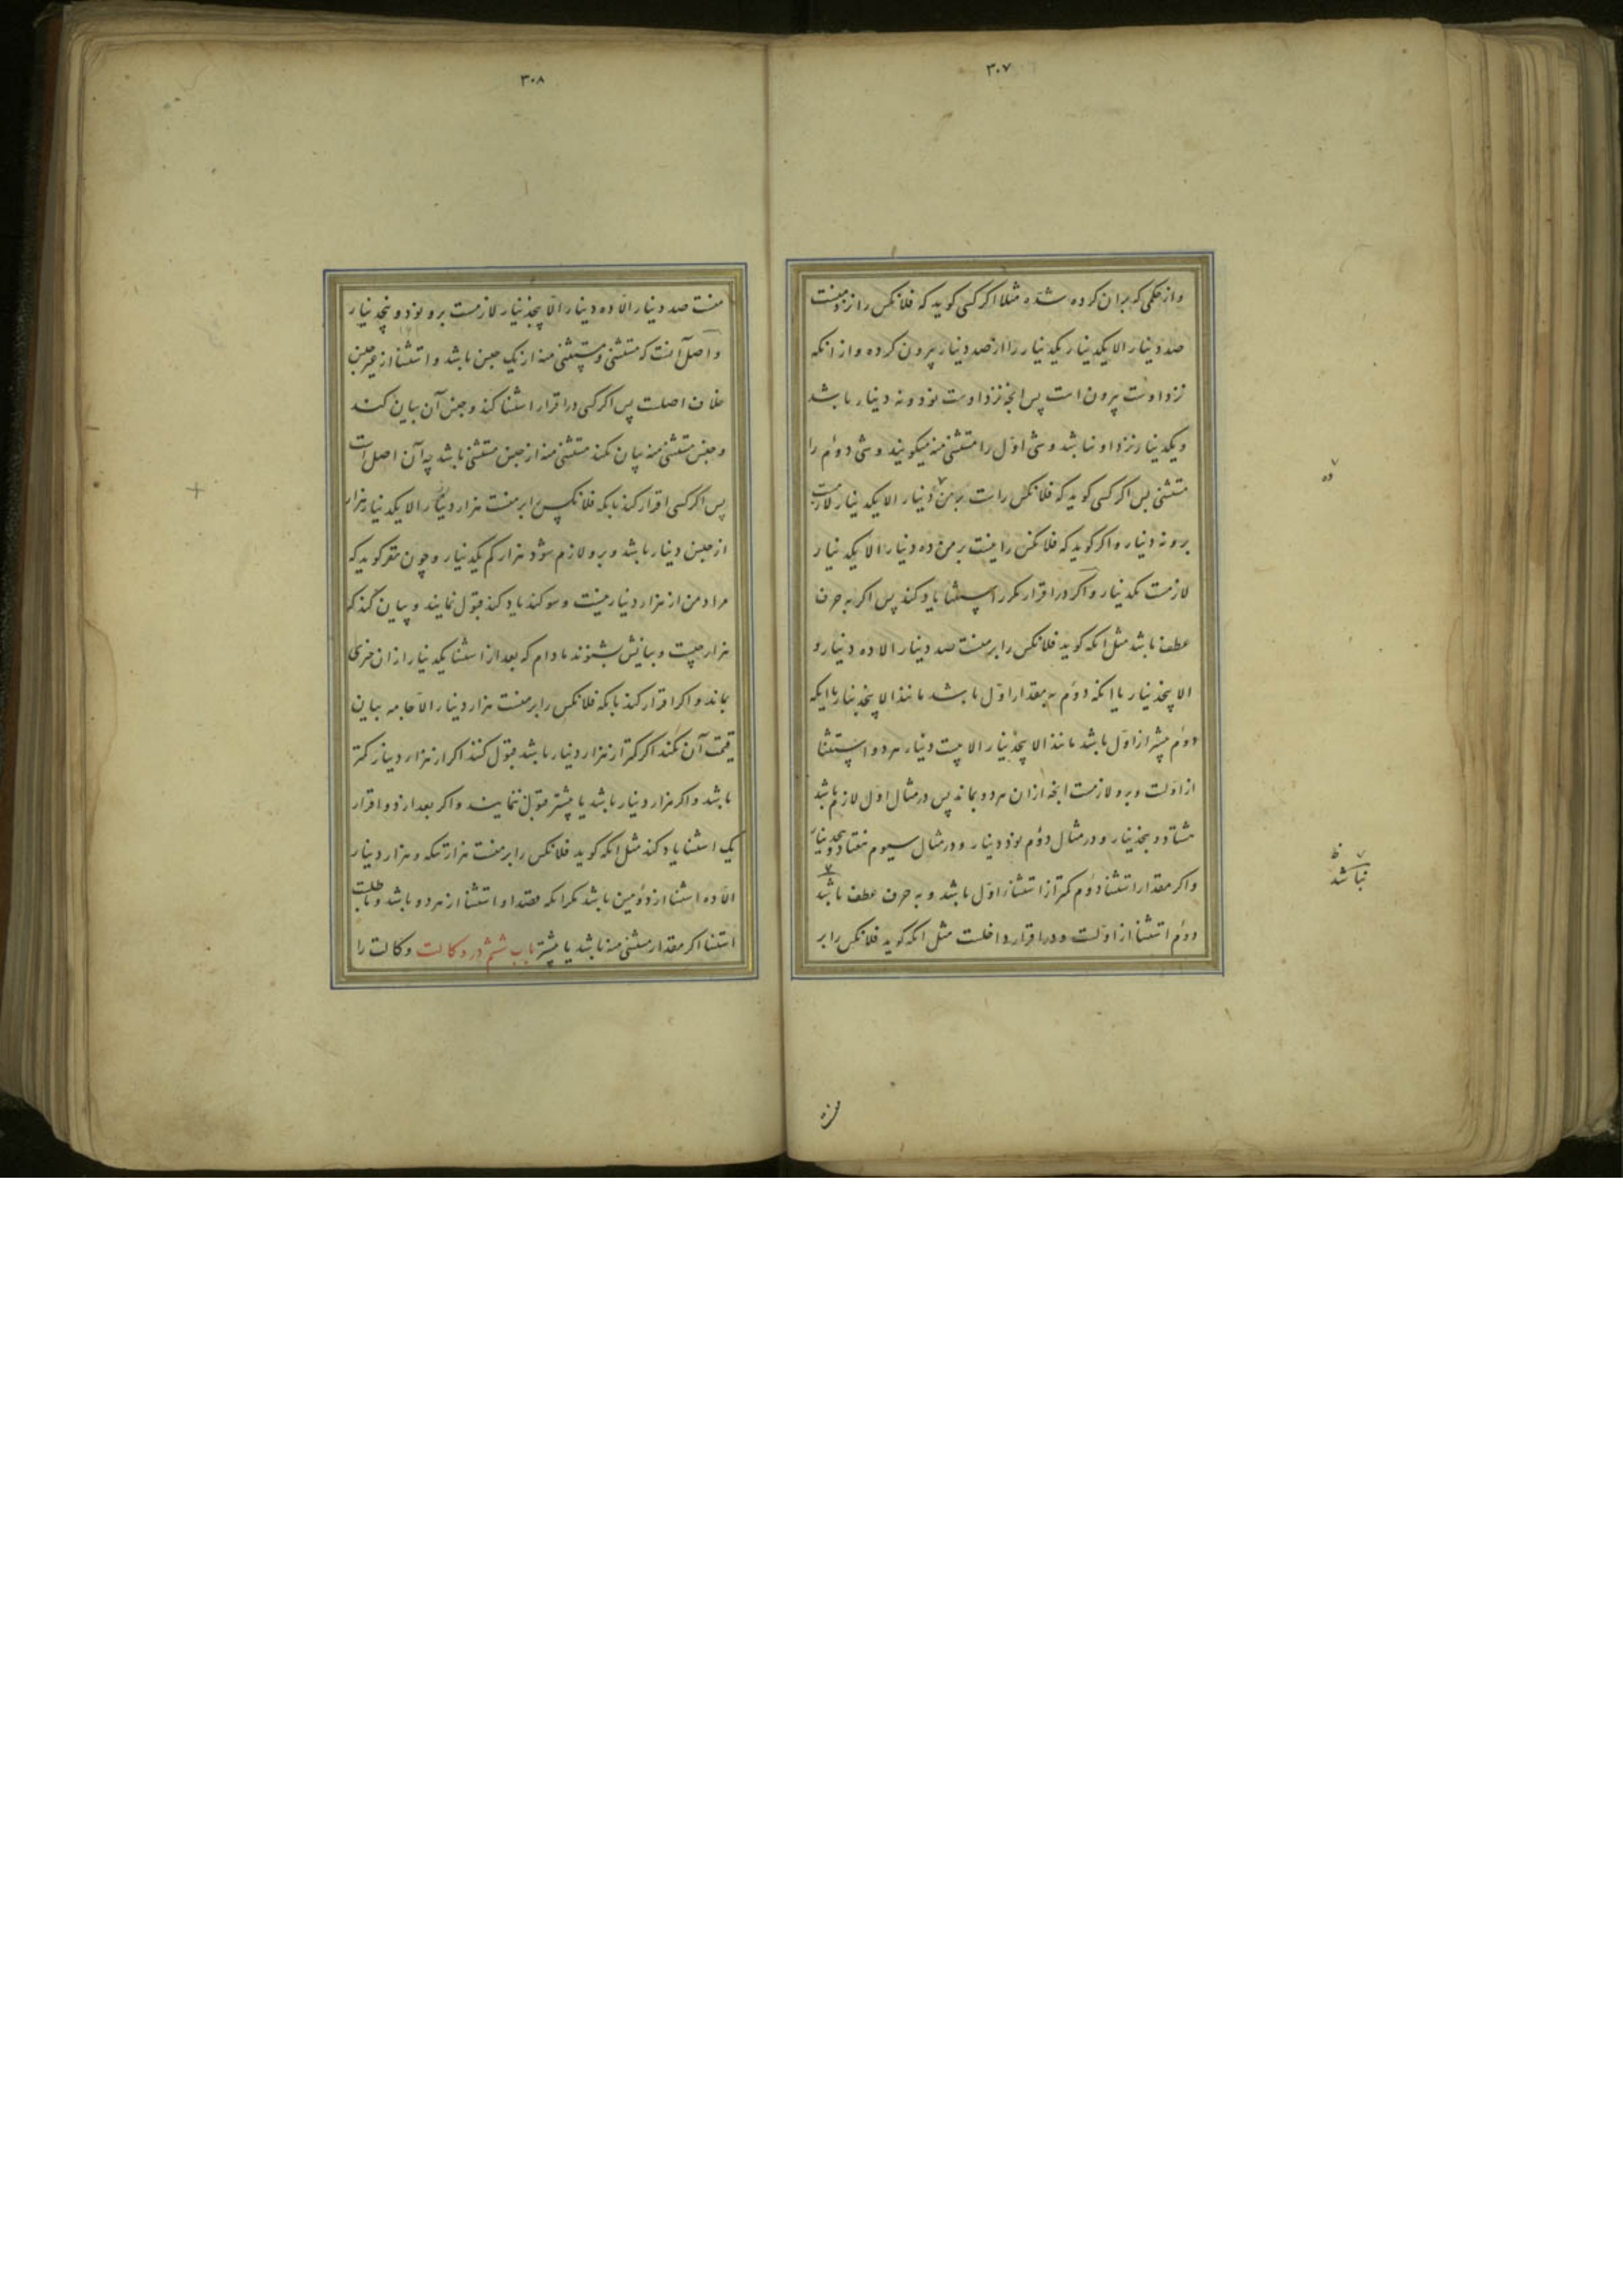 ۳۰۷
واز حکمی که بران کرده شده مثلا اکر کسی کوید که فلانکس را نزد منست
صد دینار الا یکدینار یکدینار را از صد دینار بیرون کرده و از انکه
نزد اوست بیرون است پس انچه نزد اوست نود و نه دینار باشد
و یکدینار نزد او نباشد و شی اوّل را مستثنی منه میکویند و شی دوئم را
مستثنی پس اکر کسی کوید که فلانکس راست بر من دینار الا یکدینار لازمست
برو نه دینار و اکر کوید که فلانکس را نیست بر من ده دینار الا یکدینار
لازمست یکدینار و اکر در اقرار مکرر استثنا یاد کند پس اکر به حرف
عطف باشد مثل انکه کوید فلانکس را بر منست صد دینار الا ده دینار و
الا پنجدینار یا انکه دوئم به مقدار اوّل باشد مانند الا پنجدینار یا انکه
دوئم بیشتر از اوّل باشد مانند الا پنجدینار الا بیست دینار هر دو استثنا
از اوّلست و برو لازمست انچه از ان هر دو بماند پس در مثال اوّل لازم باشد
هشتاد و پنجدینار و در مثال دوئم نود دینار و در مثال سیوم هفتاد و پنجدینار
و اکر مقدار استثنا دوئم کمتر از استثنا اوّل باشد و به حرف عطف باشد
دوئم استثنا از اوّلست و در اقرار داخلست مثل انکه کوید فلانکس را بر
ده
نباشد
۳۰۸
منست صد دینار الّا ده دینار الّا پنجدینار لازمست برو نود و پنجدینار
و اصل آنست که مستثنی و مستثنی منه از یک جنس باشد و استثنا از غیر جنس
خلاف اصلست پس اکر کسی در اقرار استثنا کند و جنس آن بیان کند
و جنس مستثنی منه بیان نکند مستثنی منه از جنس مستثنی باشد چه آن اصل است
پس اکر کسی اقرار کند بانکه فلانکس را بر منست هزار دینار الا یکدینار هزار
از جنس دینار باشد و برو لازم شود هزار کم یکدینار و چون مقر کوید که
مراد من از هزار دینار نیست و سوکند یاد کند قبول نمایند و بیان کند که
هزار چیست و بیانش بشنوند مادام که بعد از استثنا یکدینار از ان چیزی
بماند و اکر اقرار کند بانکه فلانکس را بر منست هزار دینار الّا جامه بیان
قیمت آن بکند اکر کمتر از هزار دینار باشد قبول کنند اکر از هزار دینار کمتر
باشد و اکر هزار دینار باشد یا بیشتر قبول ننمایند و اکر بعد از دو اقرار
یک استثنا یاد کند مثل انکه کوید فلانکس را بر منست هزار تنکه و هزار دینار
الّا ده استثنا از دوئمین باشد مکر انکه قصد او استثنا از هر دو باشد و باطلست
استثنا اکر مقدار مستثنی منه باشد یا بیشتر باب ششم در وکالت وکالت را